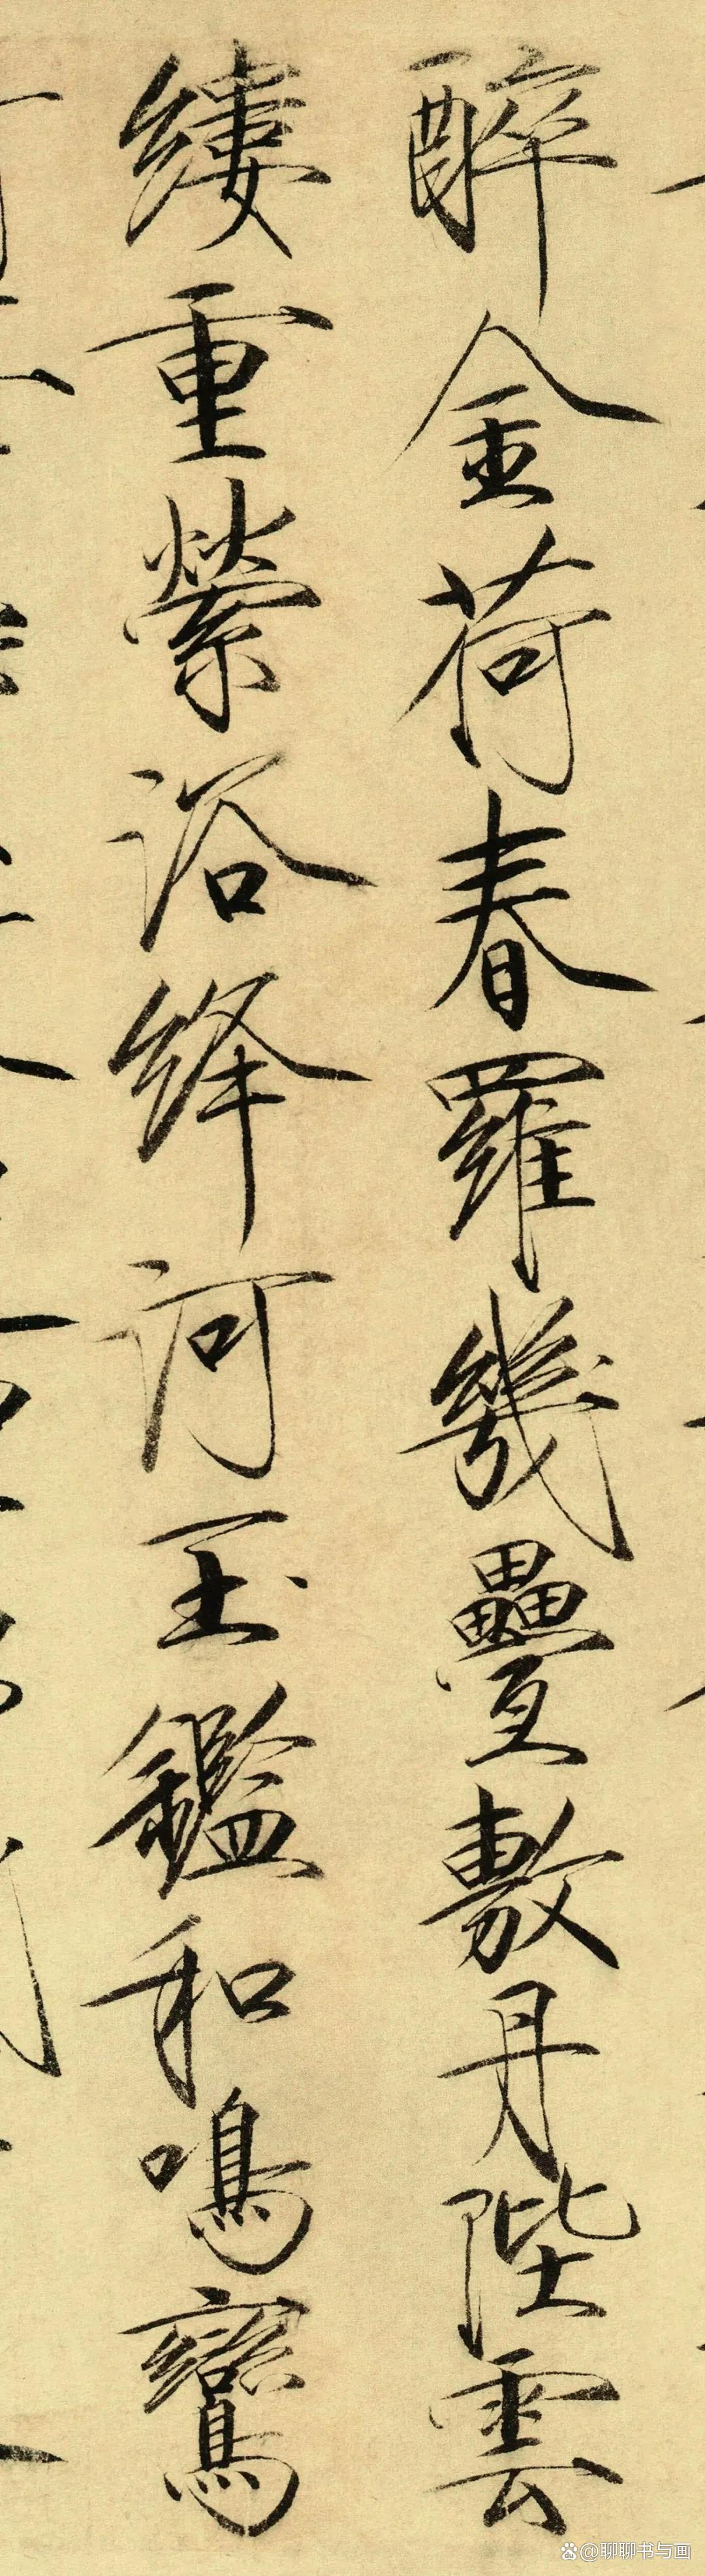 醉金荷春羅幾疊敷丹陛雲
縷重縈浴絳河玉鑑和鳴鸞
@聊聊书与画